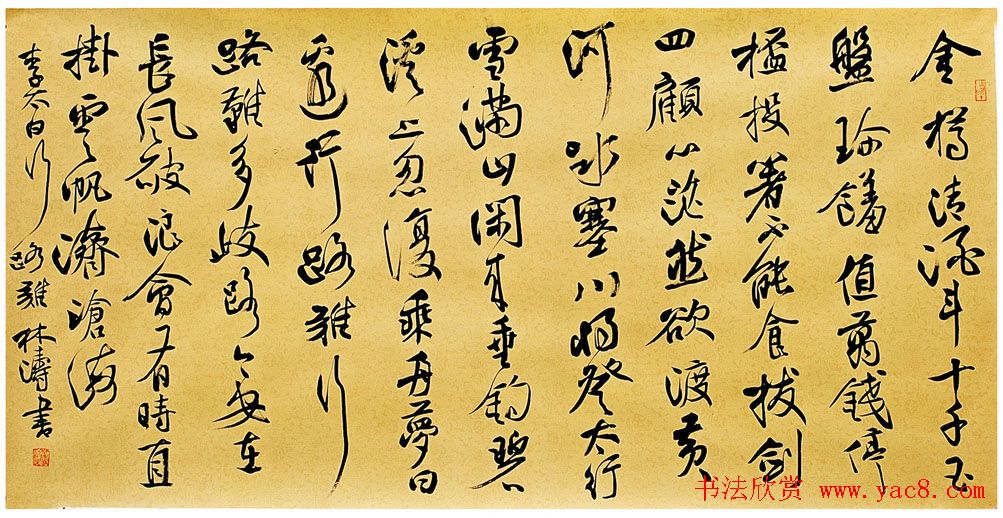 金樽清酒斗十千玉
盤珍饈值萬錢停
桮投箸不能食拔劍
四顧心茫然欲渡黃
河冰塞川將登太行
雪滿山閑來垂釣碧
溪上忽復乘舟夢日
邊行路難行
路難多歧路今安在
長風破浪會有時直
掛雲帆濟滄海
李太白行路難 林濤書
书法欣赏 www.yac8.com